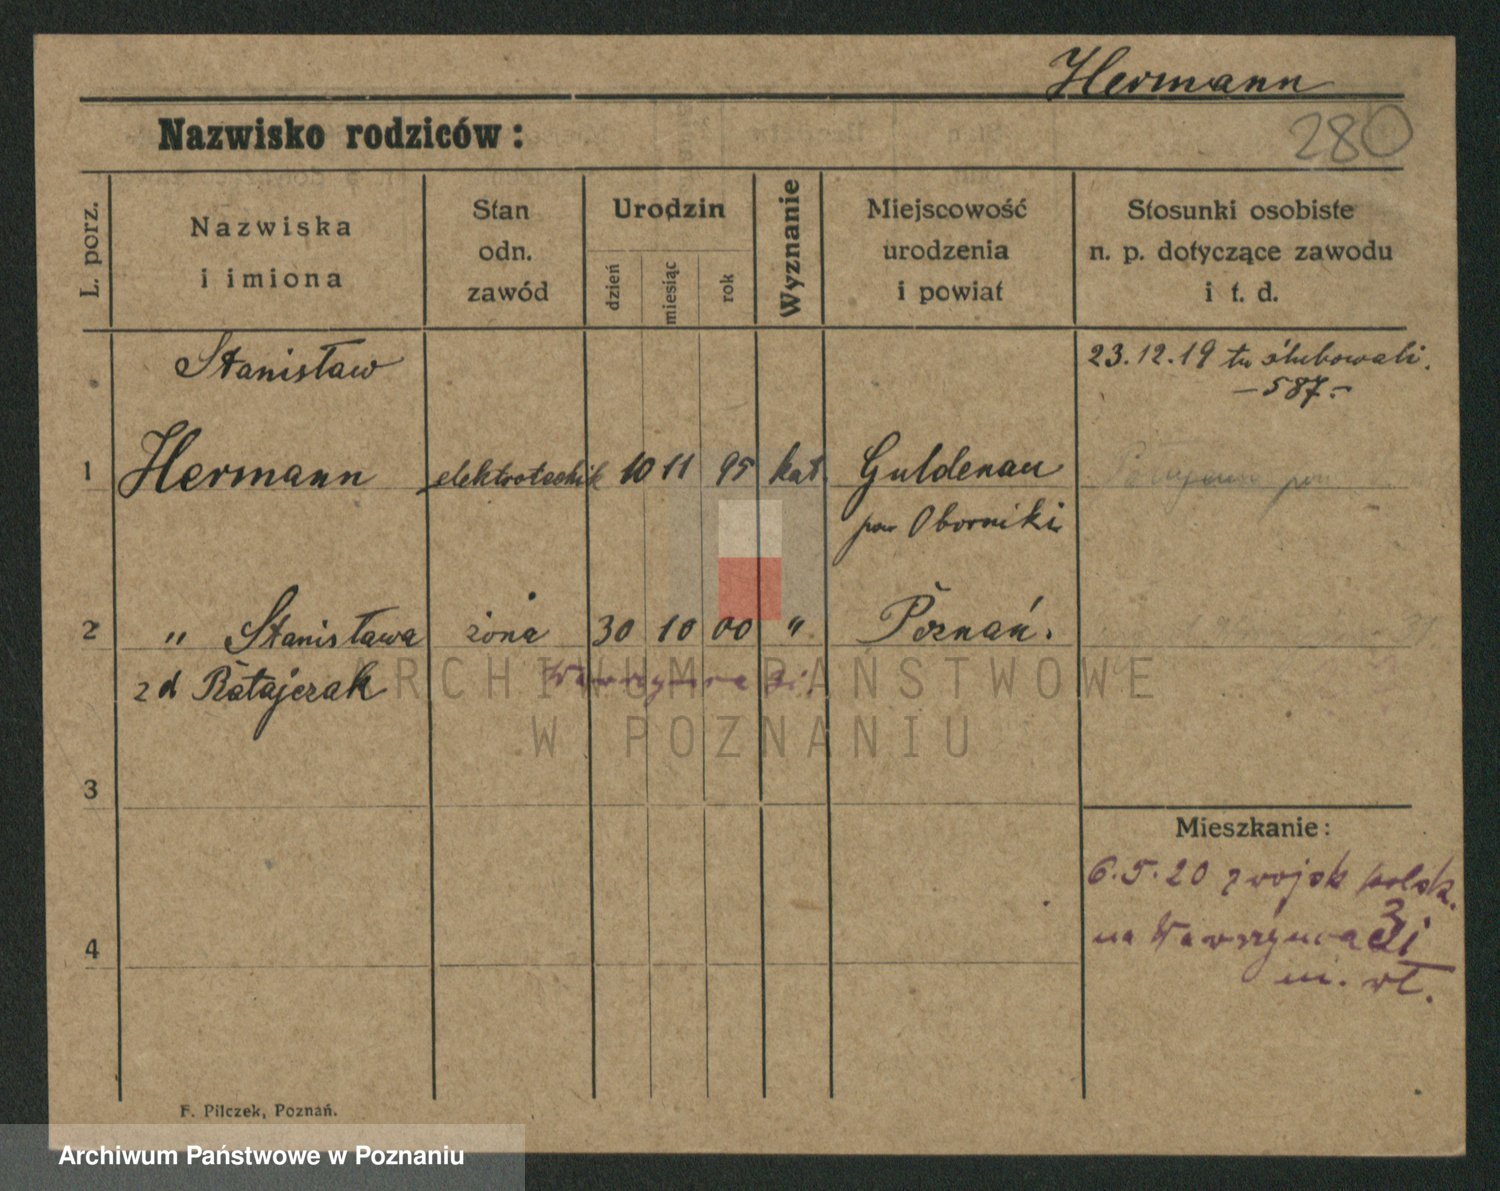 Hermann
280
Nazwisko rodziców:
L. porz.
Nazwiska
i imiona
Stan
odn.
zawód
Urodzin
dzień
miesiąc
rok
Wyznanie
Miejscowość
urodzenia
i powiat
Stosunki osobiste
n. p. dotyczące zawodu
i t. d.
Stanisław
23.12.19 tu ślubowali.
– 587.–
1 Hermann elektrotechnik 10 11 95 kat. Guldenau
pow Oborniki
2 " Stanisława żona 30 10 00 " Poznań.
zd Ratajczak
Wawrzyńca 3i
3
4
Mieszkanie:
6.5.20 z wojsk polsk.
na Wawrzyńca 3i
m. wł.
F. Pilczek, Poznań.
ARCHIWUM PAŃSTWOWE
W POZNANIU
Archiwum Państwowe w Poznaniu